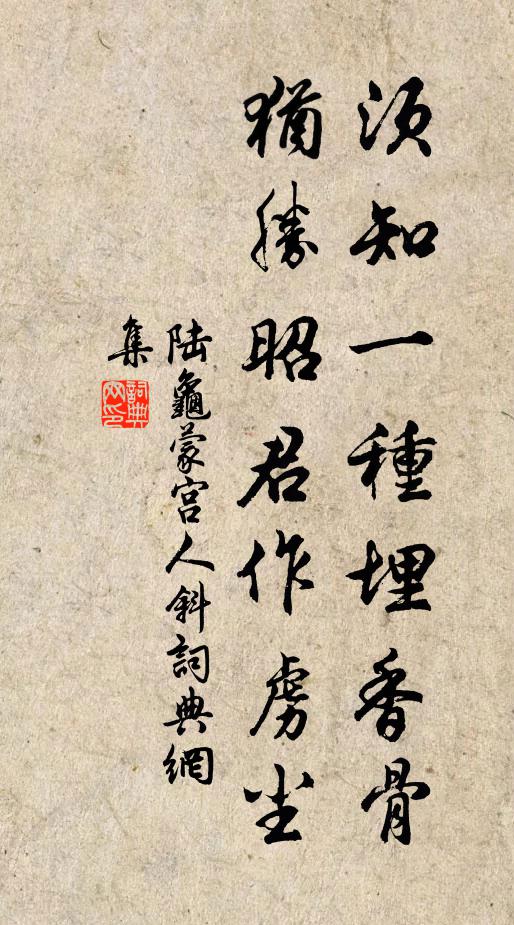 須知一種埋香骨
猶勝昭君作虜尘
陸龜蒙宮人斜詞典網
集
詞典
网印